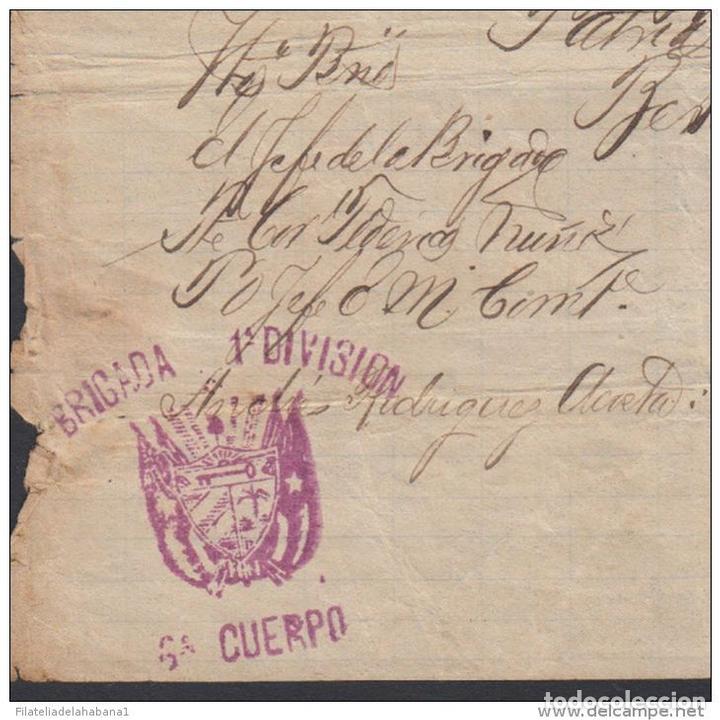 Patria
Htos Bnes
El Jefe de la Brigada
Tte Cor Federico Nuñez
P O Jefe E M Comte
Andrés Rodriguez Acosta
BRIGADA 1ª DIVISION
6ª CUERPO
Filateliadelahabana1
todocoleccion
www.delcampe.net